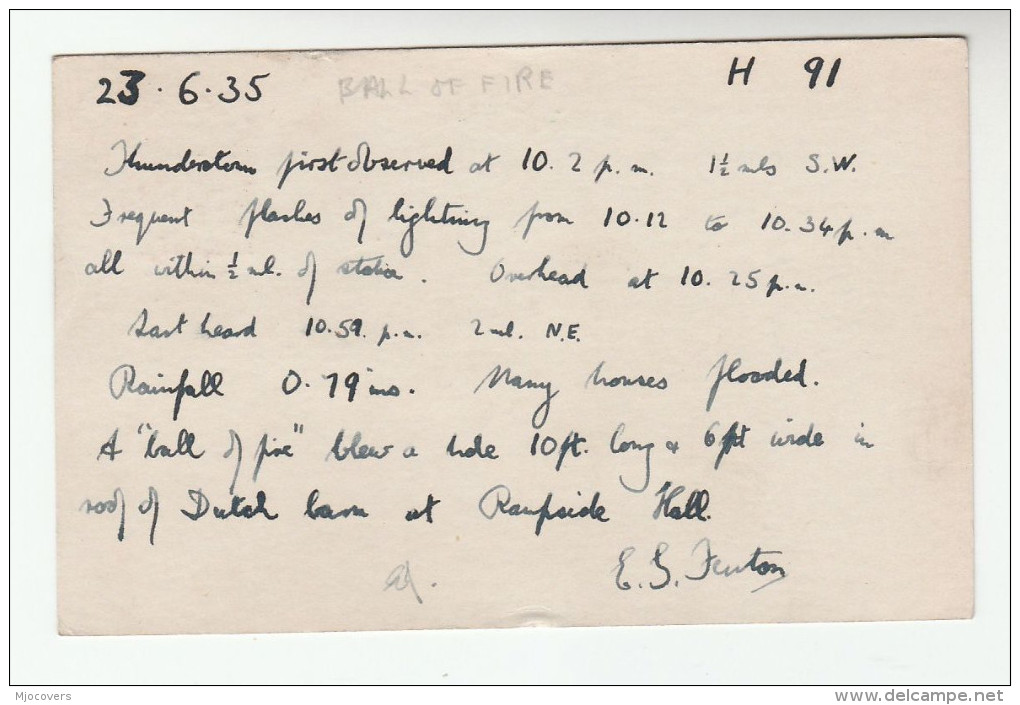 23.6.35 BALL OF FIRE H 91
Thunderstorm first observed at 10.2 p.m. 1½ mls S.W.
Frequent flashes of lightning from 10.12 to 10.34 p.m
all within ½ ml. of station. Overhead at 10.25 p.m.
Last heard 10.59. p.m. 2 ml. N.E.
Rainfall 0.79 ins. Many houses flooded.
A "ball of fire" blew a hole 10ft. long & 6ft wide in
roof of Dutch barn at Rampside Hall.
E. G. Fenton
Mjocovers www.delcampe.net